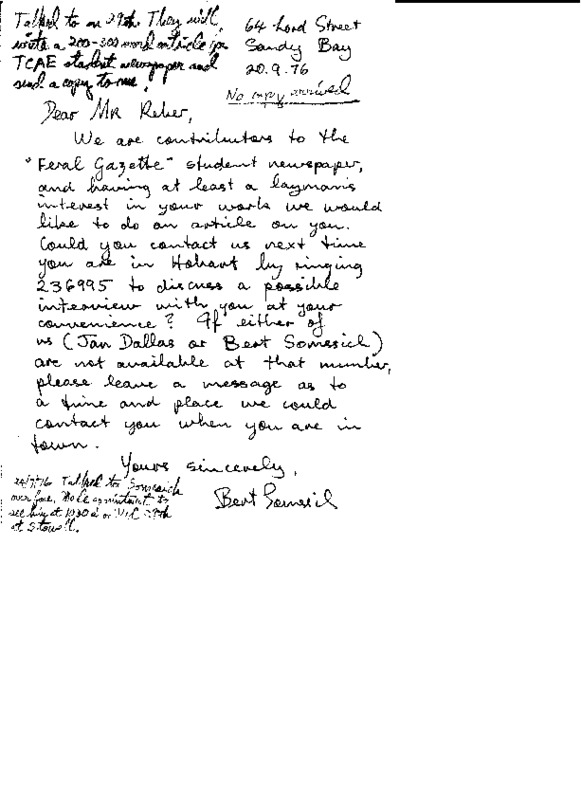 Talked to on 29th They will
write a 200-300 word article for
TCAE student newspaper and
send a copy to me.
64 Lord Street
Sandy Bay
20.9.76
No copy arrived
Dear Mr Reber,
We are contributors to the
"Feral Gazette" student newspaper,
and having at least a layman's
interest in your work we would
like to do an article on you.
Could you contact us next time
you are in Hobart by ringing
236995 to discuss a possible
interview with you at your
convenience? If either of
us (Jan Dallas or Bert Somesich)
are not available at that number,
please leave a message as to
a time and place we could
contact you when you are in
town.
Yours sincerely,
Bert Somesich
Talked to Somesich
over fone. Made appointment to
see him at 1030 29th
at Stowell.